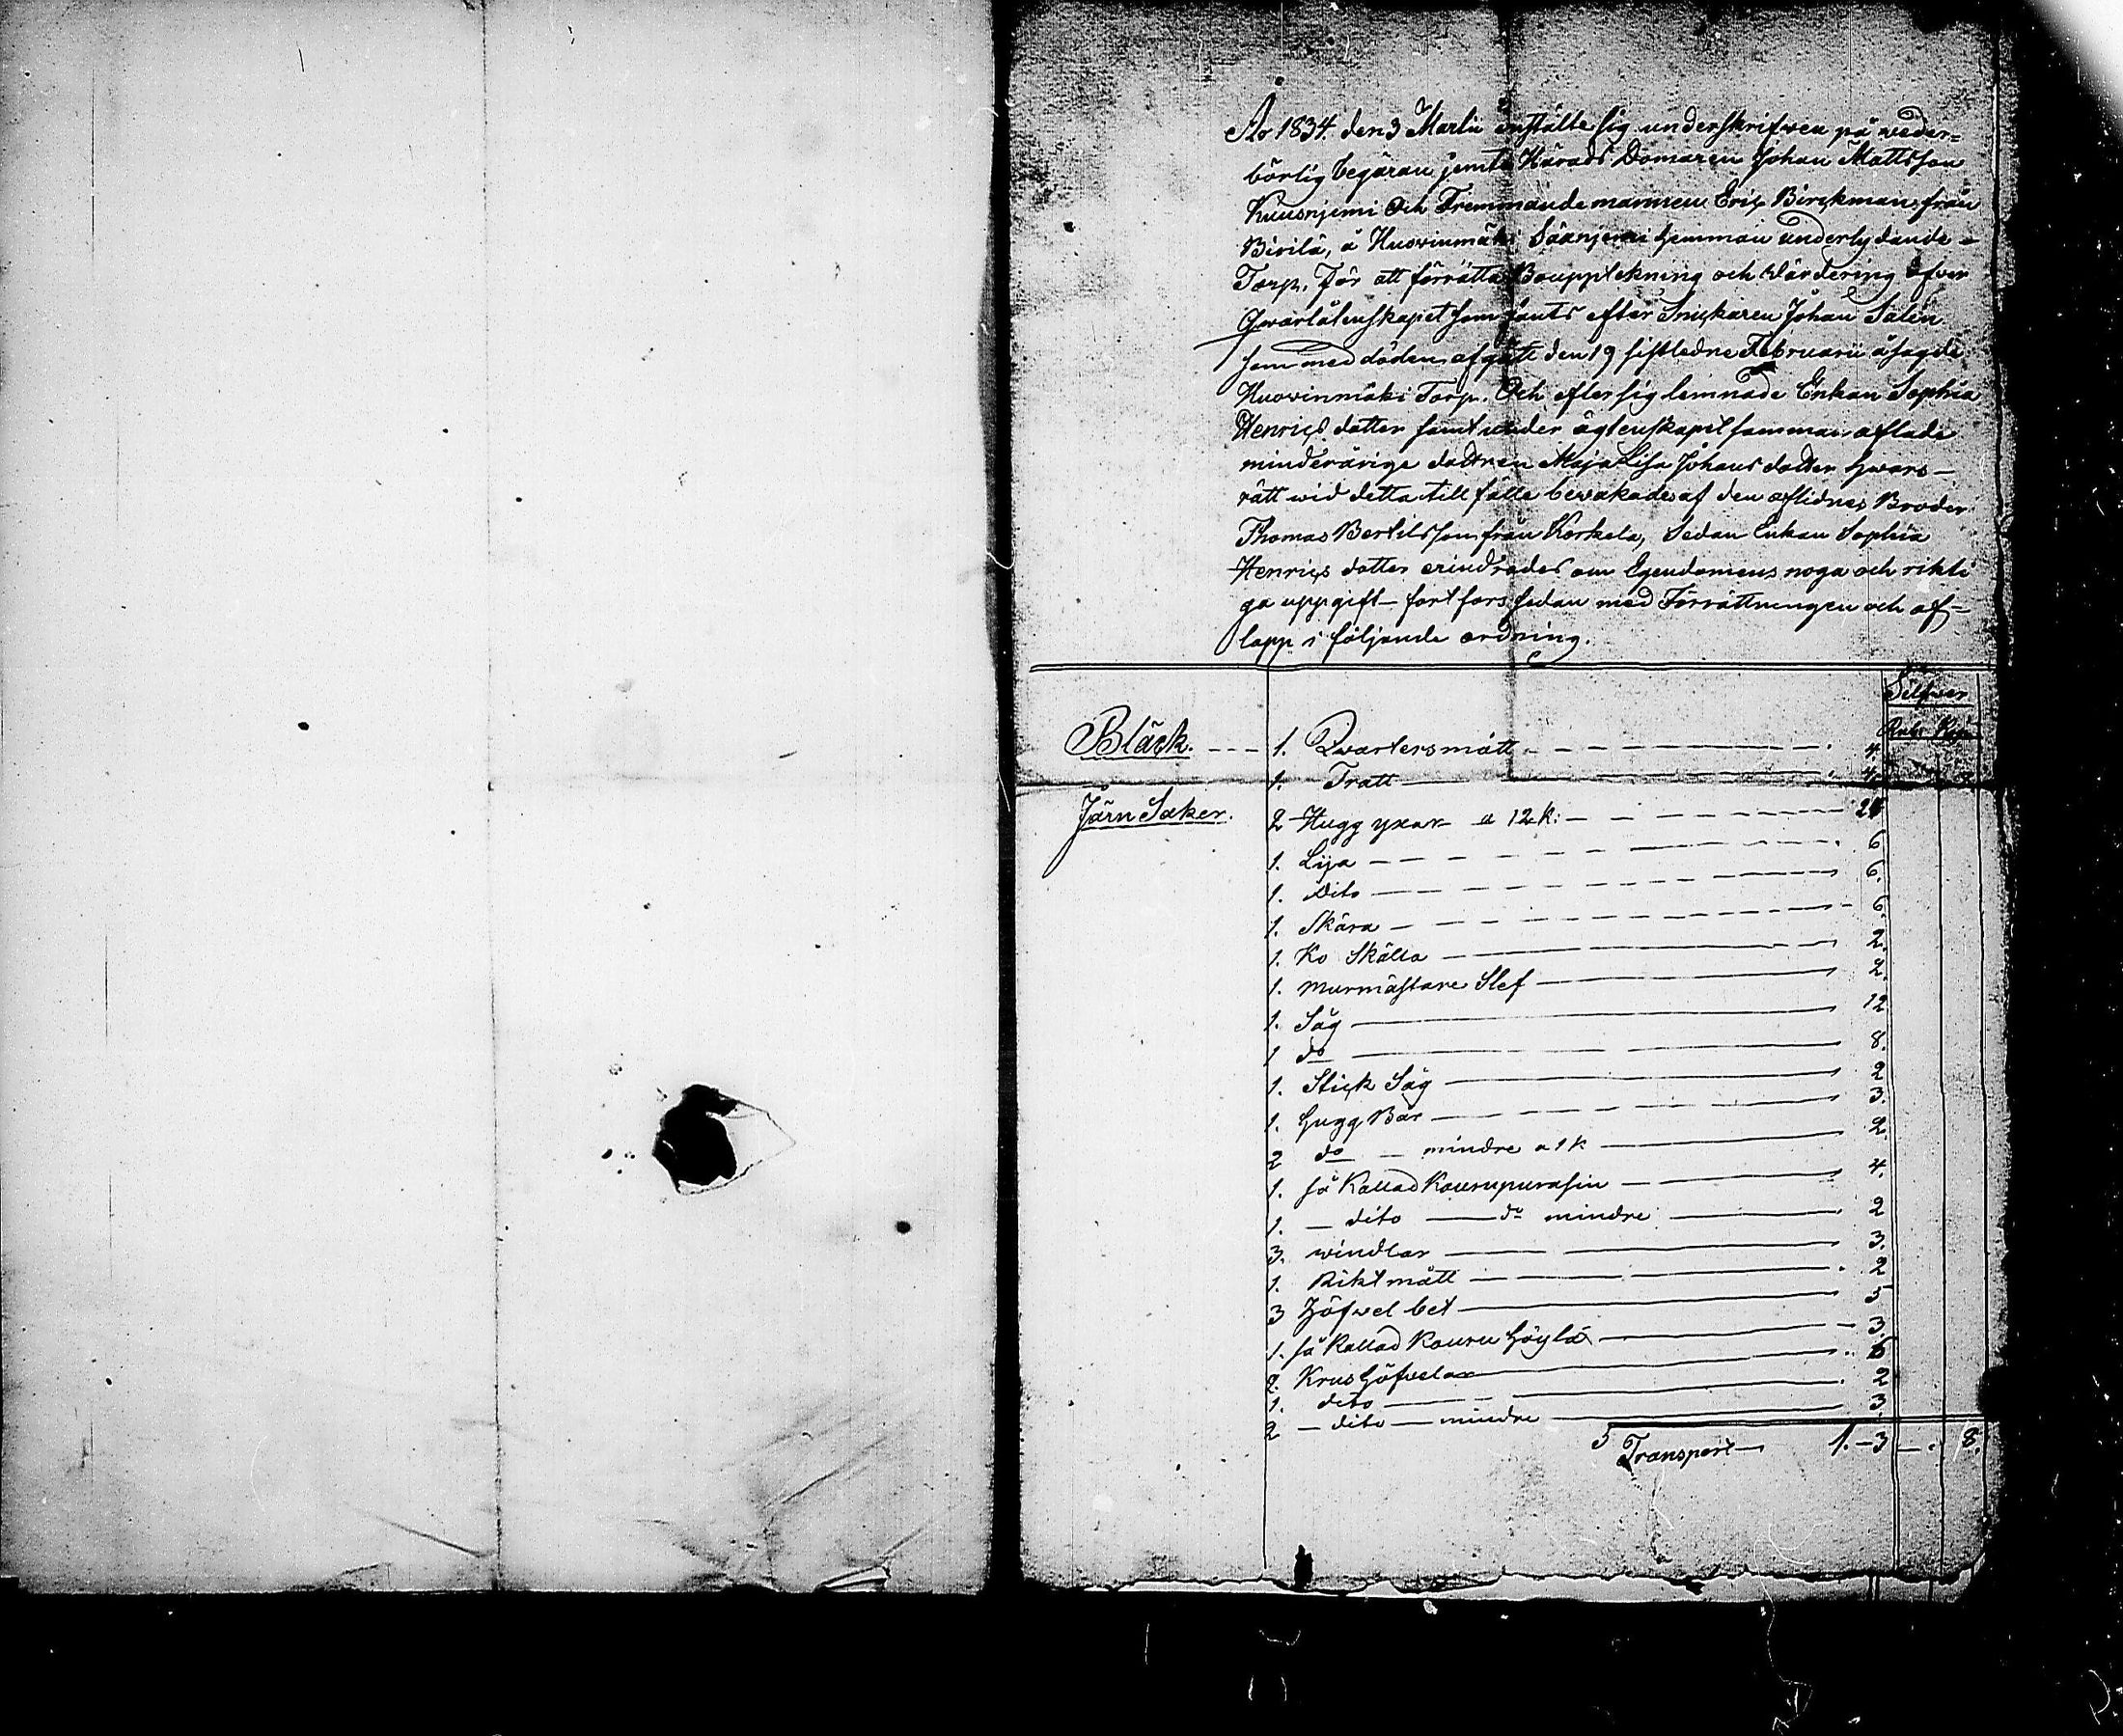 Ao 1834. den 3 Martii instälte sig underskrifven på veder=
börlig begäran jemte Härads Domaren Johan Mattsson
Kuusnjemi Och Fremmande mannen Eric Birckman från
Birilä, å Huovinmäki Säänjemi hemman underlydande
Torp. För att förrätta Bouppteckning och Värdering öfver
Qvarlåtenskapet som fants efter Snickaren Johan Salin
som med döden afgått den 19 sistledne Februarii å sagde
Huovinmäki Torp. Och efter sig lemnade Enkan Sophia
Henrics dotter samt under ägtenskapet samman aflade
minderårige dottren Maja Lisa Johans dotter hvars-
rätt vid detta tillfälle bevakades af den aflidnes Broder
Thomas Bertilsson från Korkela, Sedan Enkan Sophia
Henrics dotter erindrades om Egendomens noga och rikti
ga uppgift fortfors sedan med Förrättningen och af-
lopp i följande ordning.
Silfver
Rube Kop
Bläck. 1. Qvartersmått 4.
1. Tratt 4.
Järn Saker. 2 Hugg yxar a 12 k: 24
1. Lija 6
1. Dito 6.
1. Skära 6.
1. Ko Skälla 2.
1. Murmästare Slef 2.
1. Såg 12
1 do 8.
1. Stick Såg 2
1. Hugg Bår 3.
2 do mindre a 1 k 2.
1. så Kallad Kourupurasin 4.
1. dito do mindre 2
3. vindlar 3.
1. Riktmått 2
3 Höfvel bet 3
1. så kallad Kouru höylä 3.
2. Krus höfvelar 6
1. dito 2
2 dito mindre 3.
Transport 1.-3 8.